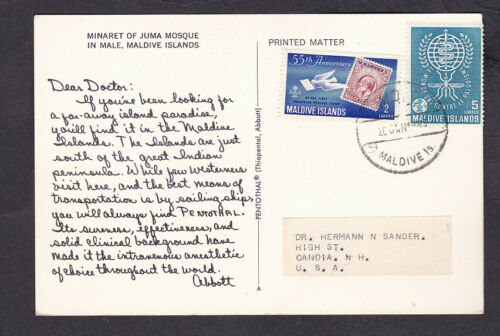 MINARET OF JUMA MOSQUE
IN MALE, MALDIVE ISLANDS
PRINTED MATTER
Dear Doctor:
If you've been looking for
a far-away island paradise,
you'll find it in the Maldive
Islands. The Islands are just
south of the great Indian
peninsula. While few westerners
visit here, and the best means of
transportation is by sailing ships,
you will always find PENTOTHAL.
Its sureness, effectiveness, and
solid clinical background have
made it the intravenous anesthetic
of choice throughout the world.
Abbott
PENTOTHAL® (Thiopental, Abbott)
55th Anniversary
OF THE FIRST
MALDIVIAN POSTAGE STAMP
2
LAREES
MALDIVE ISLANDS
5
MALDIVE ISLANDS
MALDIVE IS.
DR. HERMANN N SANDER.
HIGH ST.
CANDIA, N H.
U. S. A.
A